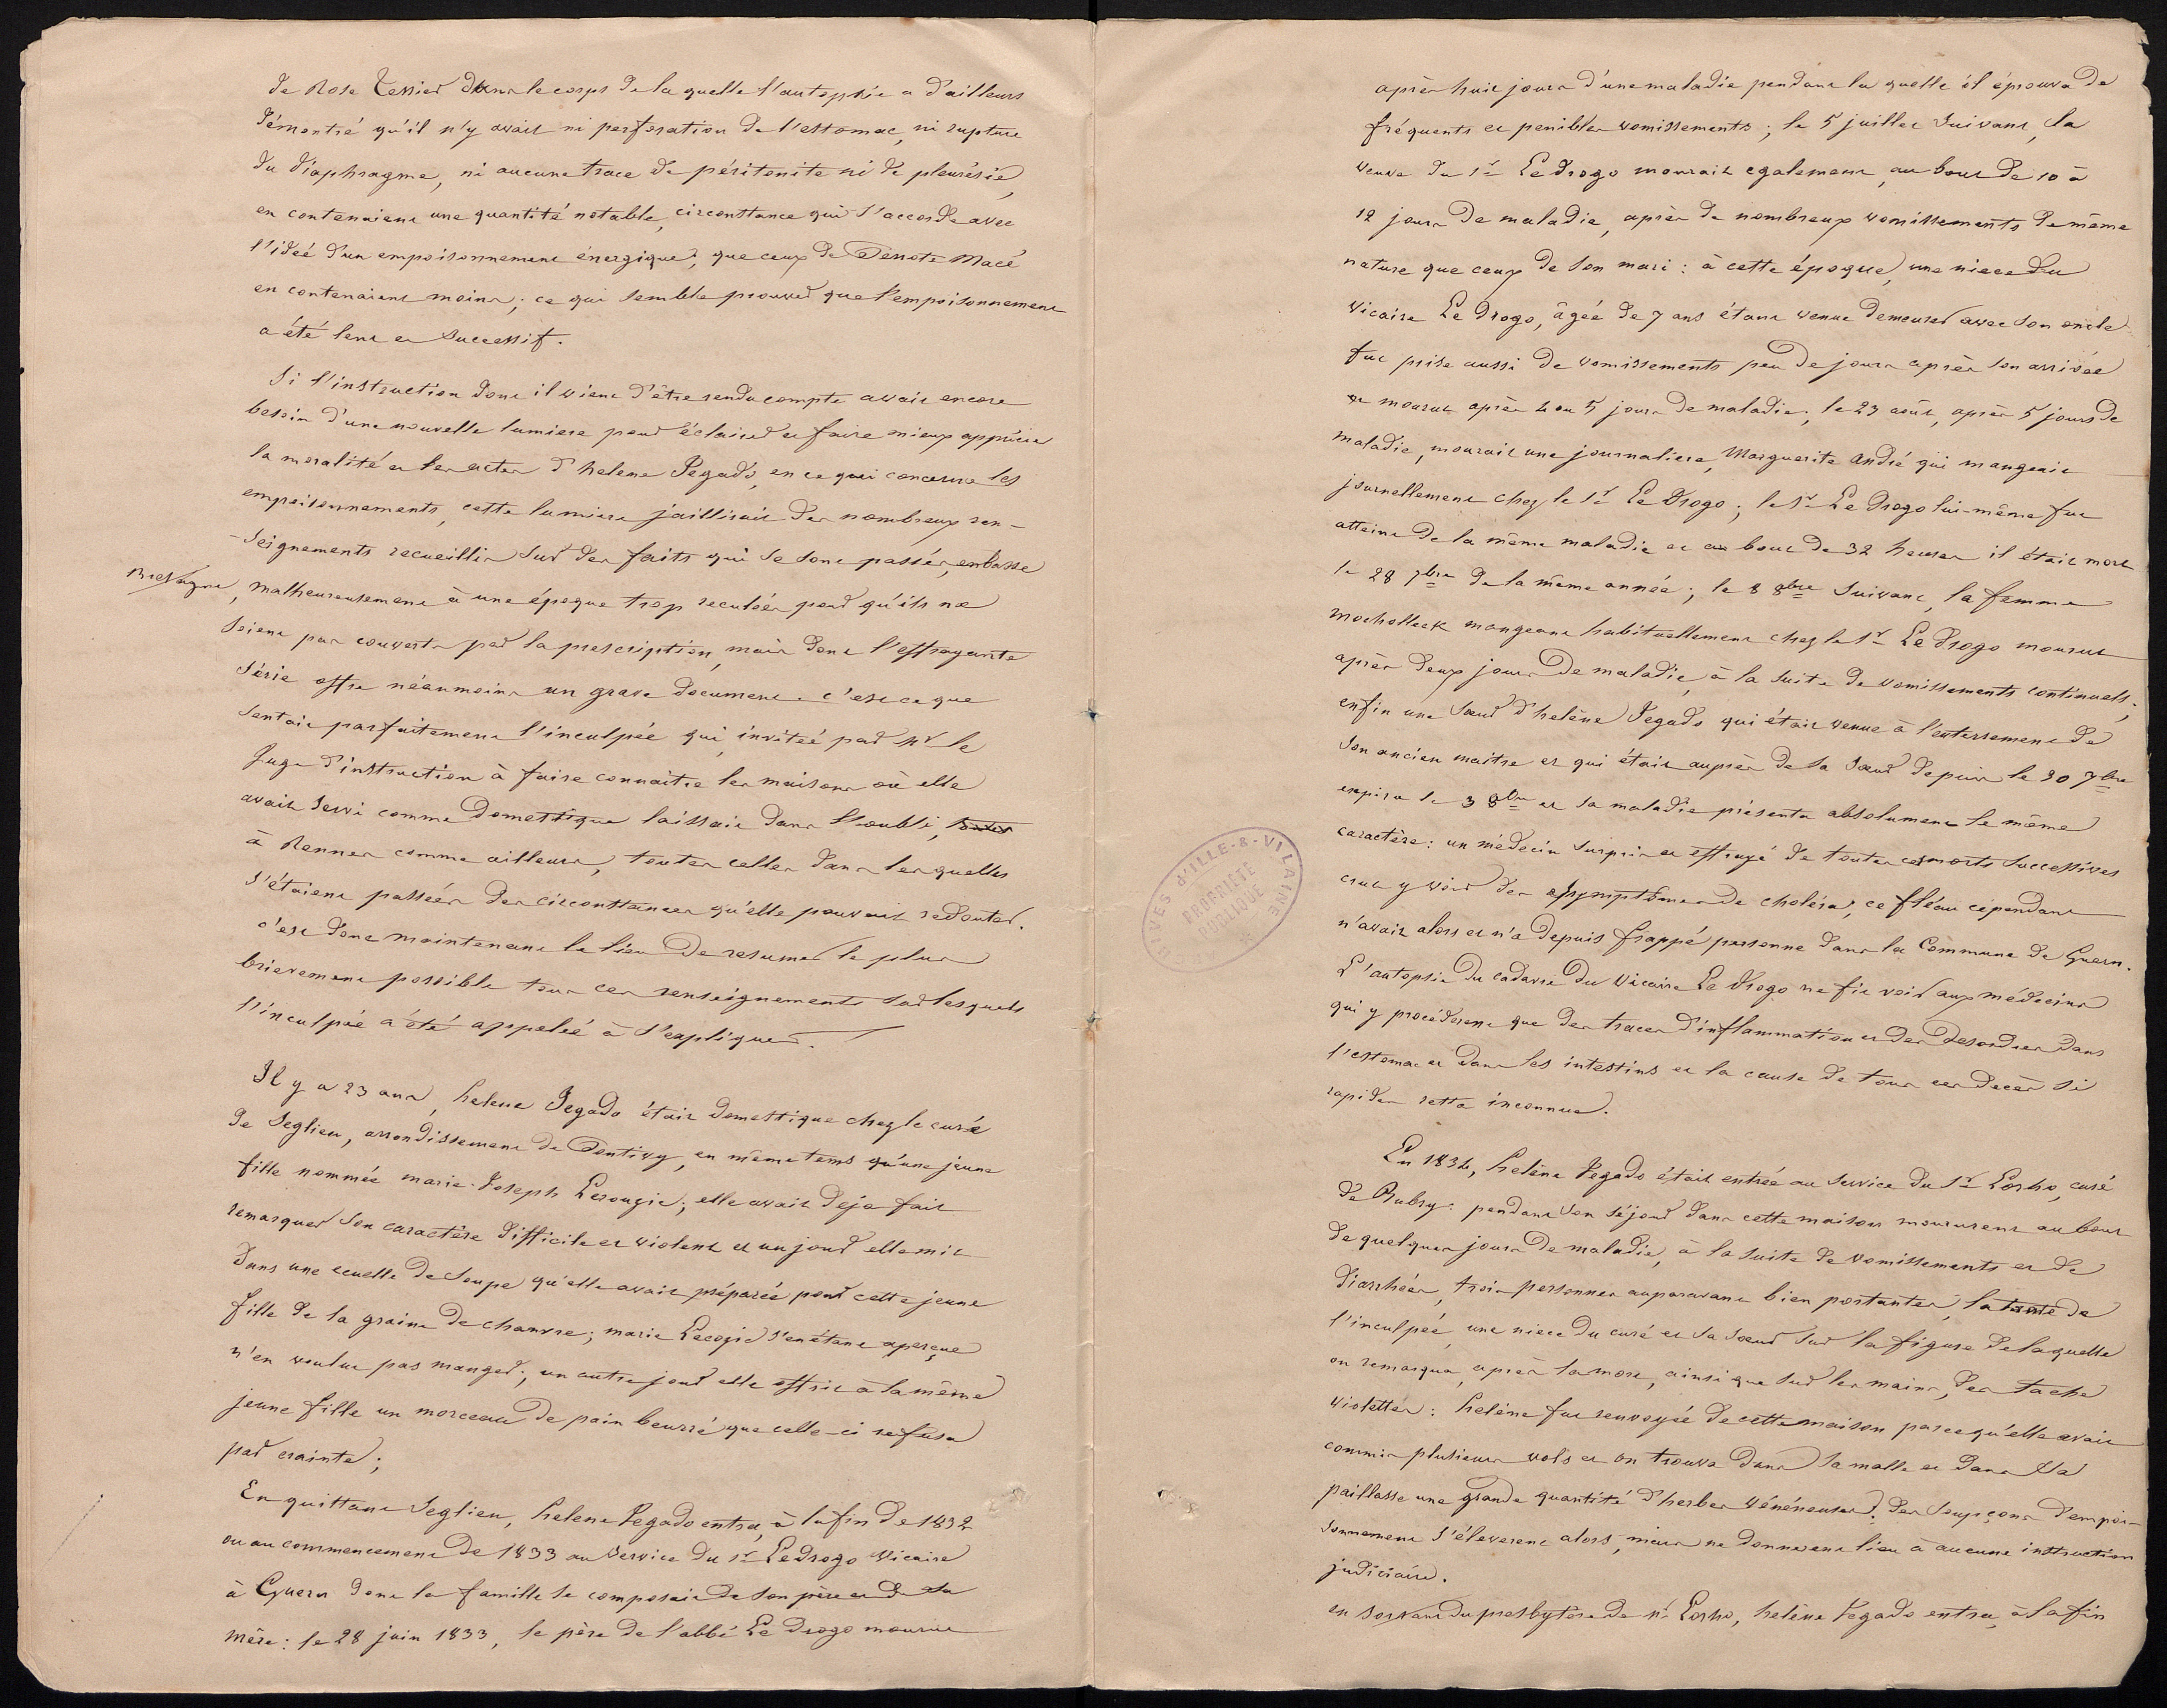 de Rose Tessier dans le corps de la quelle l'autopsie a d'ailleurs
démontré qu'il n'y avait ni perforation de l'estomac, ni rupture
du diaphragme, ni aucune trace de péritonite ni de pleurésie,
en contenaient une quantité notable, circonstance qui s'accorde avec
l'idée d'un empoisonnement énergique, que ceux de Perrote Macé
en contenaient moins; ce qui semble prouver que l'empoisonnement
a été lent et successif.
Si l'instruction dont il vient d'être rendu compte avait encore
besoin d'une nouvelle lumiere pour éclairer et faire mieux apprécier
la moralité et les actes d'helene Jegado, en ce qui concerne les
empoisonnements, cette lumiere jaillirait des nombreux ren-
-seignements recueillis sur des faits qui se sont passés, en basse
Bretagne, malheureusement à une époque trop reculée pour qu'ils ne
soient pas couverts par la prescription, mais dont l'effrayante
série offre néanmoins un grave document. c'est ce que
sentait parfaitement l'inculpée qui, invitée par Mr le
Juge d'instruction à faire connaitre les maisons où elle
avait servi comme domestique laissait dans l'oubli,
à Rennes comme ailleurs, toutes celles dans lesquelles
s'étaient passées des circonstances qu'elle pouvait redouter.
c'est donc maintenant le lieu de resumer le plus
brievement possible tous ces renseignements sur lesquels
l'inculpée a été appelée à s'expliquer.
Il y a 23 ans, helene Jegado était domestique chez le curé
de Seglien, arrondissement de Pontivy, en même tems qu'une jeune
fille nommée marie-Joseph Lerougic; elle avait deja fait
remarquer son caractère difficile et violent et un jour elle mit
dans une ecuelle de soupe qu'elle avait préparée pour cette jeune
fille de la graine de chanvre; marie s'en étant aperçue
n'en voulut pas manger; un autre jour elle offrit à la même
jeune fille un morceau de pain beurré que celle-ci refusa
par crainte;
En quittant Seglien, helene Jegado entra, à la fin de 1832
ou au commencement de 1833 au service du Sr Le Drogo vicaire
à Guern dont la famille se composait de son père et de sa
mère: le 28 juin 1833, le père de l'abbé Le Drogo mourut
après huit jours d'une maladie pendant la quelle il éprouva de
fréquents et penibles vomissements; le 5 juillet suivant, la
veuve du Sr Le Drogo mourait egalement, au bout de 10 à
12 jours de maladie, après de nombreux vomissements de même
nature que ceux de son mari: à cette époque, une niece du
Vicaire Le Drogo, âgée de 7 ans étant venue demeurer avec son oncle
fut prise aussi de vomissements peu de jours après son arrivée
et mourut après 4 ou 5 jours de maladie; le 23 août, après 5 jours de
maladie, mourait une journaliere, Marguerite André qui mangeait
journellement chez le Sr Le Drogo; le Sr Le Drogo lui-même fut
atteint de la même maladie et au bout de 32 heures il était mort
le 28 7bre de la même année; le 8 8bre suivant, la femme
mangeant habituellement chez le Sr Le Drogo mourut
après deux jours de maladie, à la suite de vomissements continuels;
enfin une sœur d'helène Jegado qui était venue à l'enterrement de
son ancien maitre et qui était auprès de sa sœur depuis le 30 7bre
expira le 3 8bre et sa maladie présenta absolument le même
caractère: un médecin surpris et effrayé de toutes ces morts successives
crut y voir des symptômes de choléra, ce fléau cependant
n'avait alors et n'a depuis frappé personne dans la Commune de Guern.
L'autopsie du cadavre du Vicaire Le Drogo ne fit voir aux médecins
qui y procédèrent que des traces d'inflammation et des desordres dans
l'estomac et dans les intestins et la cause de tous ces decès si
rapides resta inconnue.
En 1834, helène Jegado était entrée au service du Sr Lorho, curé
de Bubry: pendant son séjour dans cette maison moururent au bout
de quelques jours de maladie, à la suite de vomissements et de
diarrhées, trois personnes auparavant bien portantes, la tante de
l'inculpée, une niece du curé et sa sœur sur la figure de laquelle
on remarqua, après la mort, ainsi que sur les mains, des taches
violettes: helène fut renvoyée de cette maison parce qu'elle avait
commis plusieurs vols et on trouva dans sa malle et dans sa
paillasse une grande quantité d'herbes vénéneuses. des soupçons d'empoi-
sonnement s'éleverent alors, mais ne donnerent lieu à aucune instruction
judiciaire.
en sortant du presbytère de Mr Lorho, helène Jegado entra, à la fin
ARCHIVES d'ILLE-&-VILAINE
PROPRIETE
PUBLIQUE